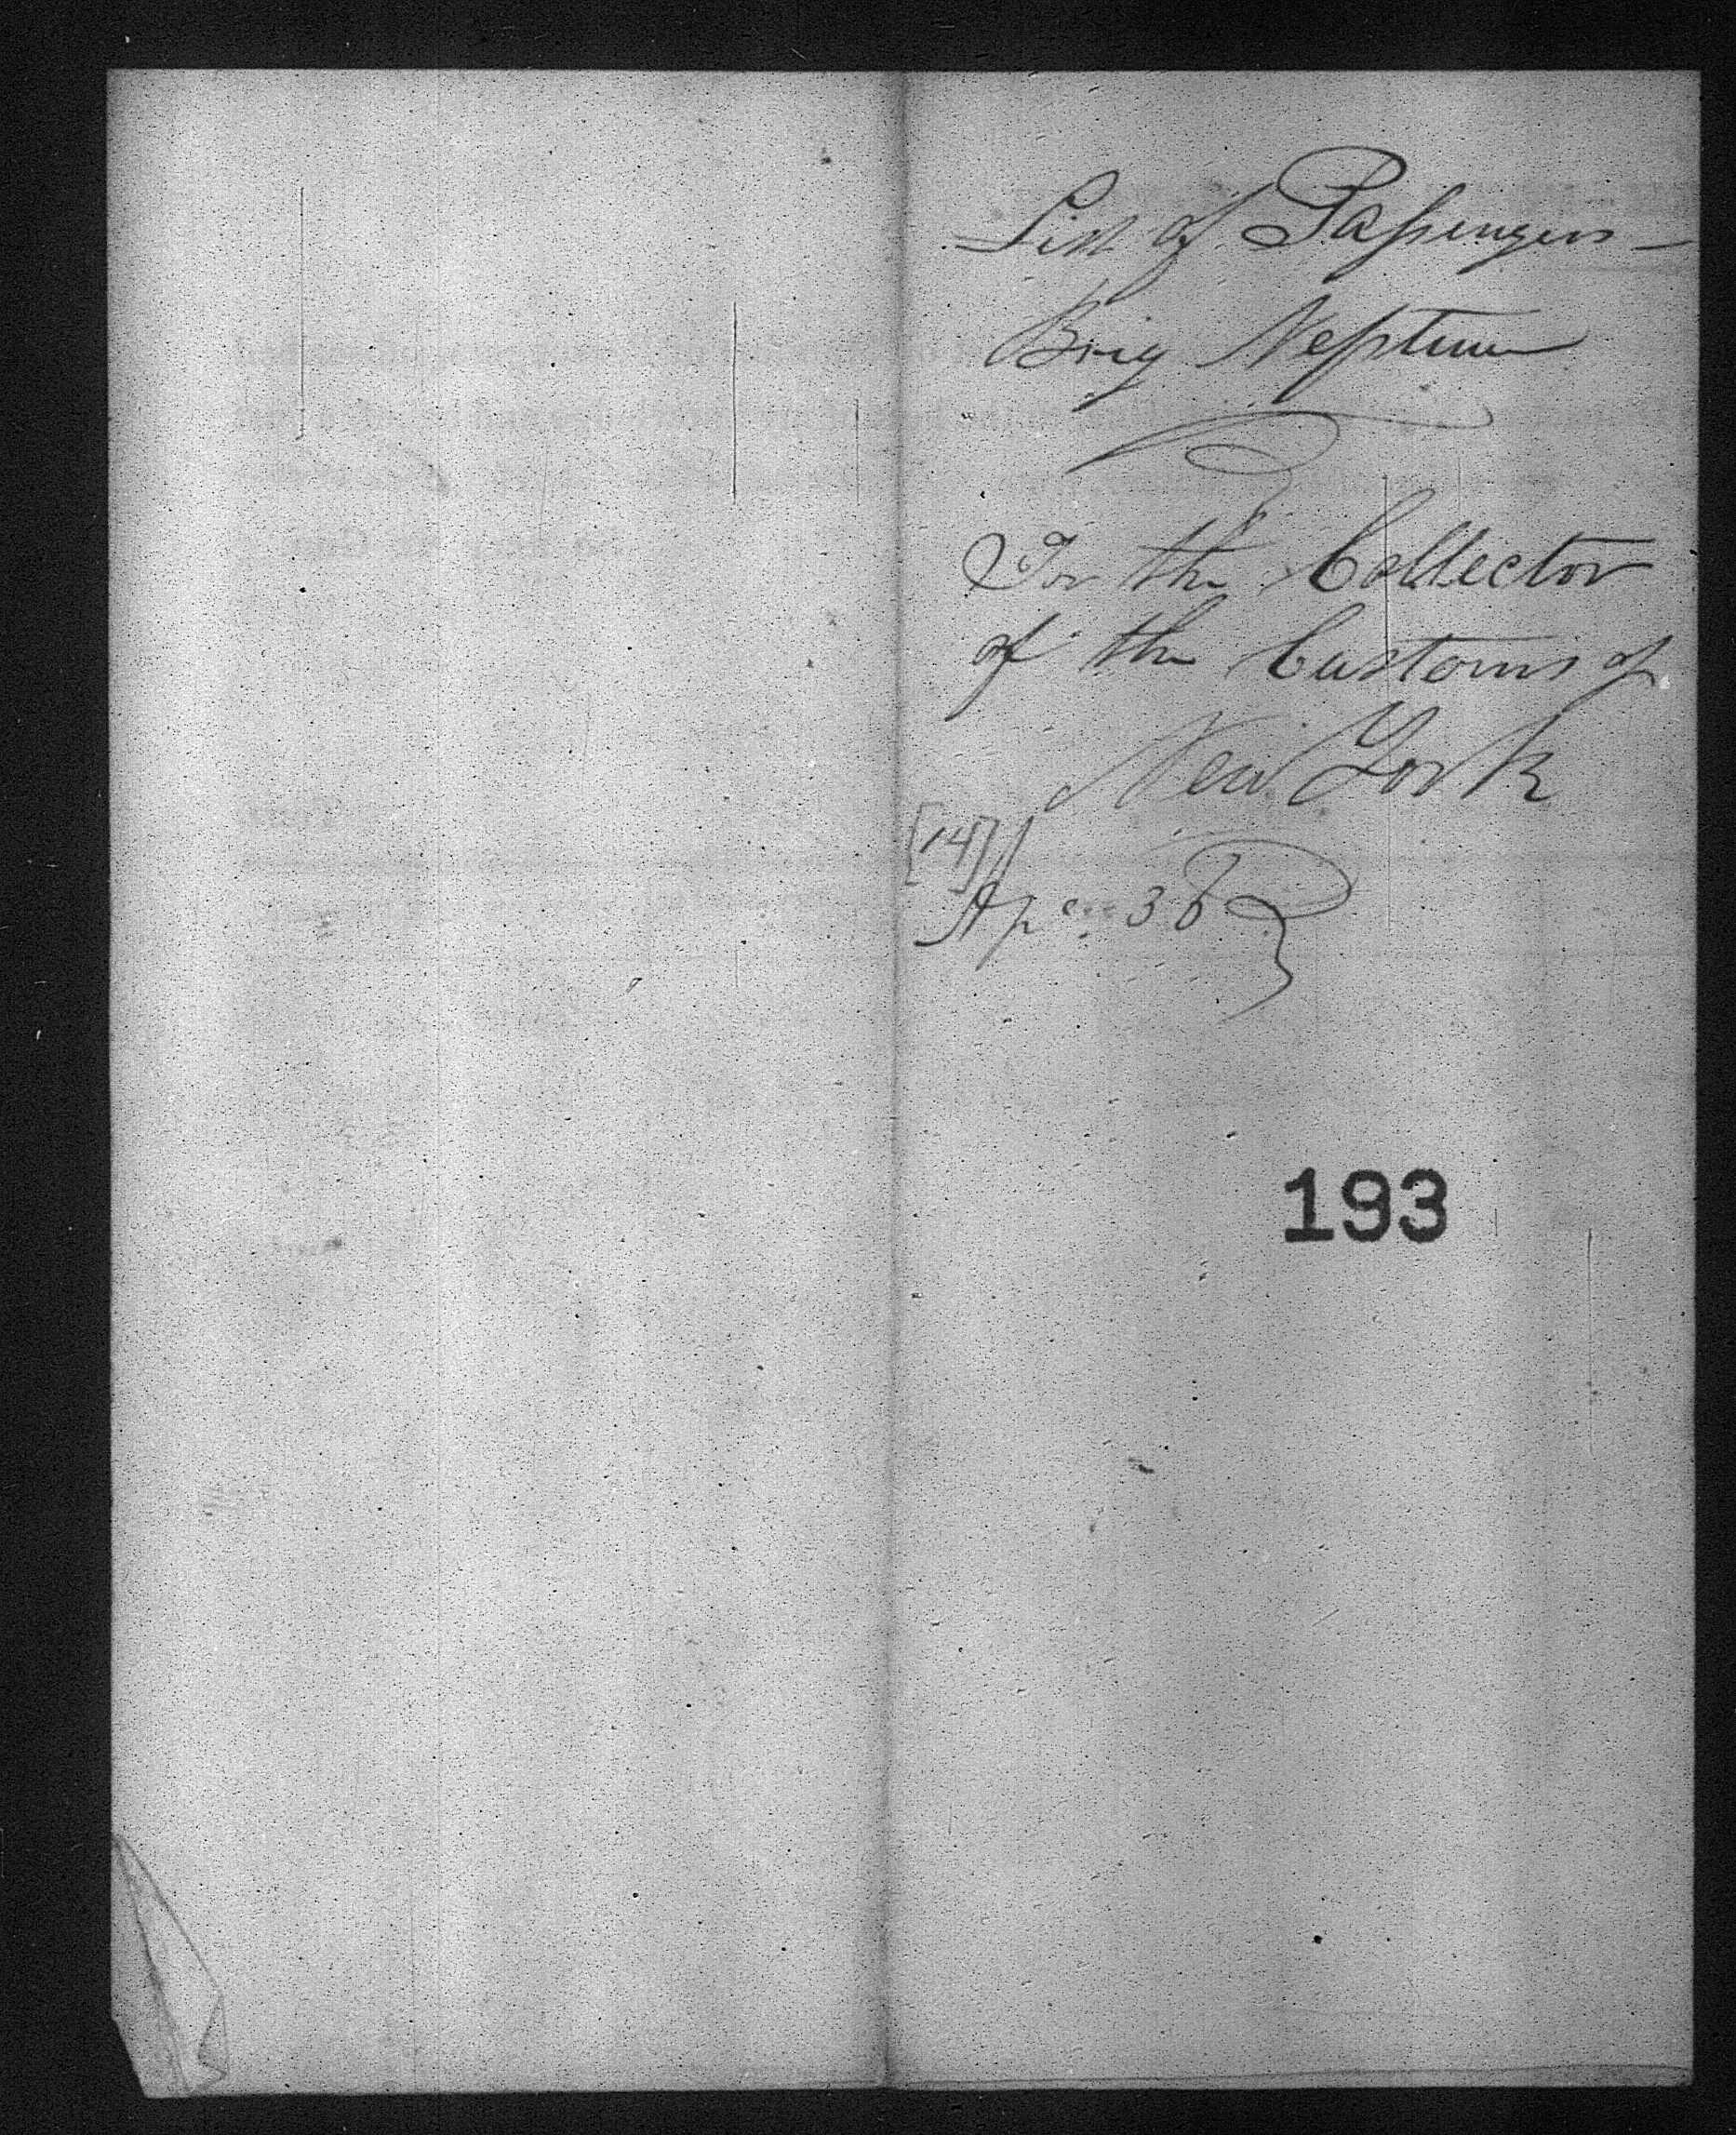 List of Passengers —
Brig Neptune
For the Collector
of the Customs of
New York
[14]
Ap 36
193